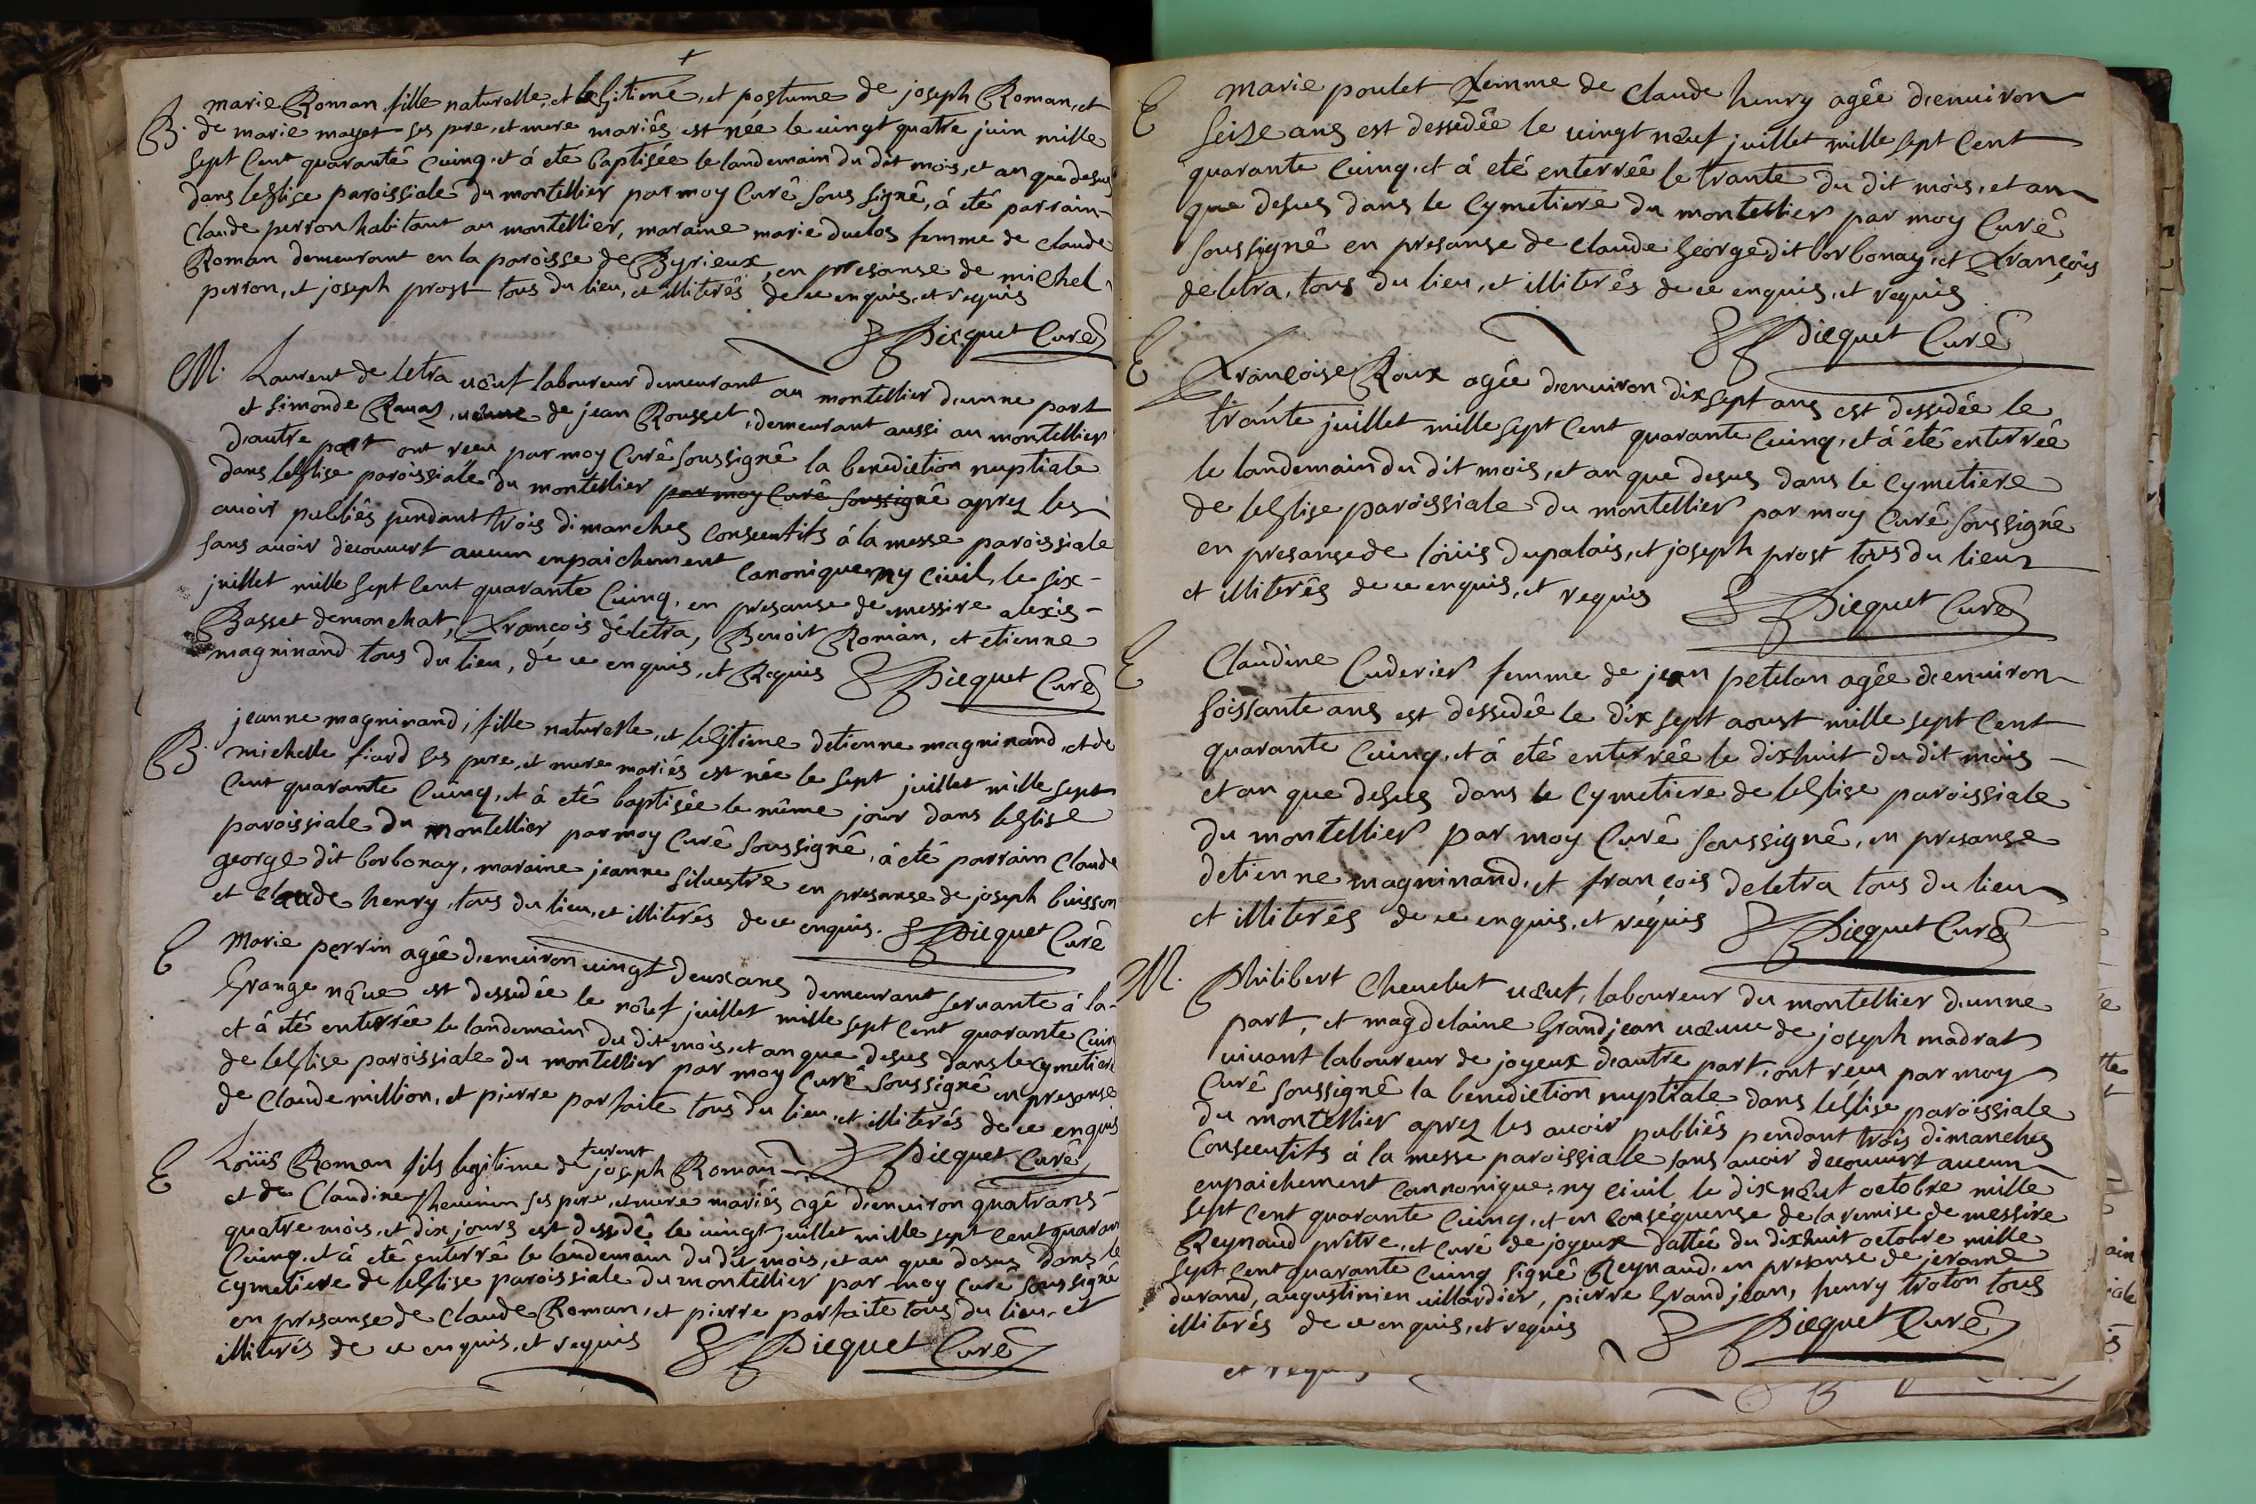 +
B. marie Roman fille naturelle, et legitime, et postume de joseph Roman, et
de marie mayet ses pere, et mere mariés est née le vingt quatre juin mille
sept cent quarante cuinq, et á eté baptisée le landemain du dit mois, et an que desus
dans leglise paroissiale du montellier par moy Curé sous signé, á eté parrain
Claude perron habitant au montellier, maraine marie duclos femme de Claude
Roman demeurant en la paroisse de Byrieux, en presanse de michel
perron, et joseph prost tous du lieu, et illiterés de ce enquis, et requis
Dicquet Curé
M. Laurent de letra vœuf laboureur demeurant au montellier d'unne part
et simonde Ravaz, vœuve de jean Rousset, demeurant aussi au montellier
d'autre part ont reçu par moy Curé soussigné la benediction nuptiale
dans leglise paroissiale du montellier par moy Curé soussigné aprez les
avoir publiés pendant trois dimanches consecutifs á la messe paroissiale
sans avoir decouvert aucun enpaichement canonique ny civil, le six
juillet mille sept cent quarante cuinq, en presanse de messire alexis
Basset demonchat, François déletra, Benoit Roman, et etienne
magninand tous du lieu, de ce enquis, et Requis Dicquet Curé
B. jeanne magninand, fille naturelle, et legitime detienne magninand, et de
michelle fiard ses pere, et mere mariés est née le sept juillet mille sept
cent quarante cuinq, et á eté baptisée le même jour dans leglise
paroissiale du montellier par moy Curé soussigné, á eté parrain Claude
george dit borbonay, maraine jeanne silvestre en presanse de joseph buisson
et Claude henry, tous du lieu, et illiterés de ce enquis. Dicquet Curé
E Marie perrin agée d'environ vingt deux ans demeurant servante á la
Grange nëuve est dessedée le nœuf juillet mille sept cent quarante cuin
et á eté enterrée le landemain du dit mois, et an que desus dans le cymetiere
de leglise paroissiale du montellier par moy Curé soussigné en presanse
de Claude million, et pierre parfaite tous du lieu, et illiterés de ce enquis
Dicquet Curé
E Loüis Roman fils legitime de feu joseph Roman
et de Claudine thevenin ses pere, et mere mariés agé d'environ quatrans
quatre mois, et dix jours est dessedé le vingt juillet mille sept cent quaran
cuinq, et á eté enterré le landemain du dit mois, et an que desus dans le
cymetiere de leglise paroissiale du montellier par moy Curé soussigné
en presanse de Claude Roman, et pierre parfaite tous du lieu, et
illiterés de ce enquis, et requis Dicquet Curé
E Marie poulet Femme de Claude henry agée d'environ
seize ans est dessedée le vingt nœuf juillet mille sept cent
quarante cuinq, et á eté enterrée le trante du dit mois, et an
que desus dans le Cymetiere du montellier par moy Curé
soussigné en presanse de Claude George dit borbonay, et François
deletra, tous du lieu, et illiterés de ce enquis, et requis
Dicquet Curé
E Françoise Roux agée d'environ dix sept ans est dessedée le
trante juillet mille sept cent quarante cuinq, et á eté enterrée
le landemain du dit mois, et an que desus dans le cymetiere
de leglise paroissiale du montellier par moy Curé soussigné
en presanse de loüis dupalais, et joseph prost tous du lieu
et illiterés de ce enquis, et requis Dicquet Curé
E Claudine Cuderier femme de jean petelan agée d'environ
soissante ans est dessedée le dix sept aoust mille sept cent
quarante cuinq, et á eté enterrée le dixhuit du dit mois
et an que desus dans le cymetiere de leglise paroissiale
du montellier par moy Curé soussigné, en presanse
detienne magninand, et françois deletra tous du lieu
et illiterés de ce enquis, et requis Dicquet Curé
M. Philibert Chevelut vœuf, laboureur du montellier d'unne
part, et magdelaine Grandjean vœuve de joseph madrat
vivant laboureur de joyeux d'autre part, ont reçu par moy
Curé soussigné la benediction nuptiale dans leglise paroissiale
du montellier aprez les avoir publiés pendant trois dimanches
consecutifs á la messe paroissiale sans avoir decouvert aucun
enpaichement cannonique, ny civil le dix nœuf octobre mille
sept cent quarante cuinq, et en conséquense de la remise de messire
Reynaud prêtre, et curé de joyeux dattée du dixhuit octobre mille
sept cent quarante cuinq signé Reynaud, en presanse de jerome
durand, augustinien villardier, pierre Grandjean, henry troton tous
illiterés de ce enquis, et requis Dicquet Curé